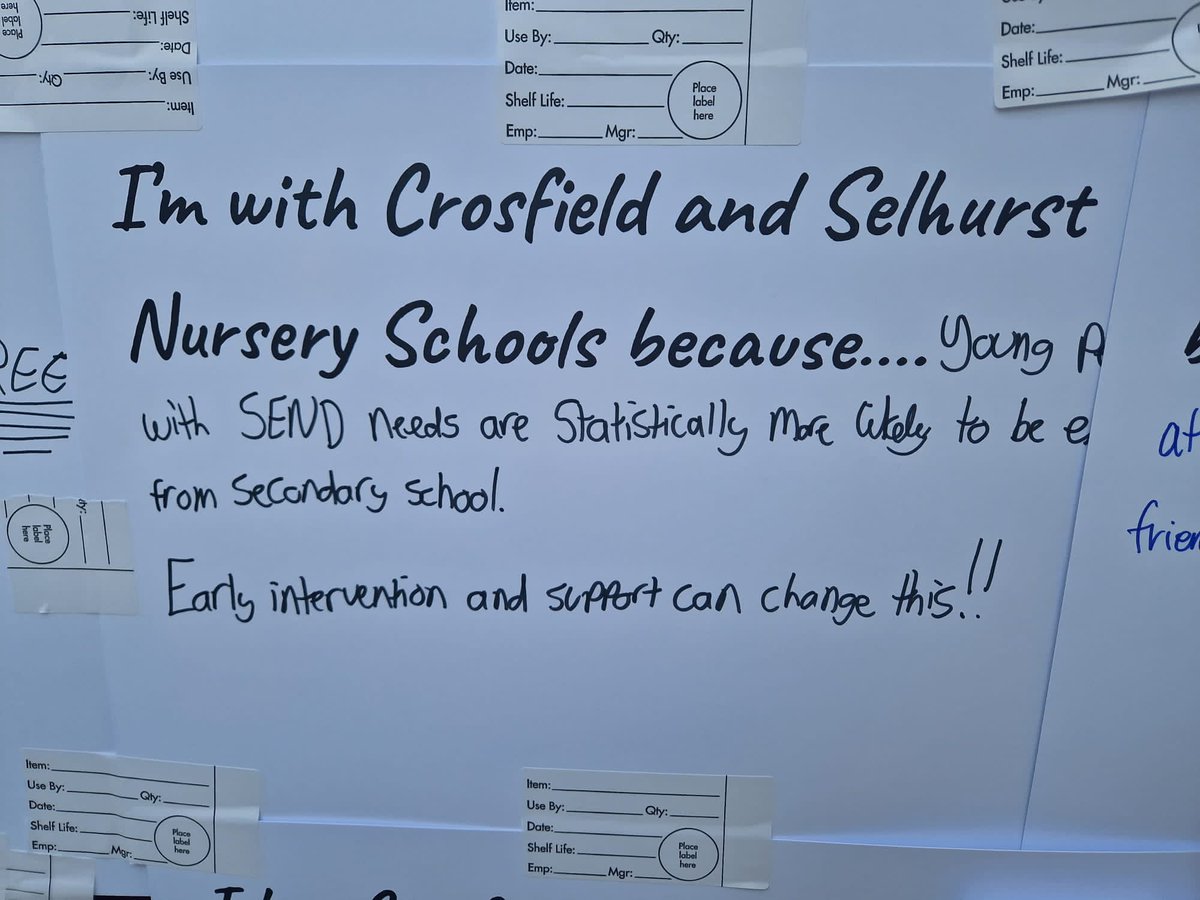 Item:
Use By: Qty:
Date:
Shelf Life:
Emp: Mgr:
Place
label
here
Date:
Shelf Life:
Emp: Mgr:
Item:
Use By: Qty:
Date:
Shelf Life:
Place
label
here
I'm with Crosfield and Selhurst
Nursery Schools because.... Young
with SEND needs are statistically more likely to be
from secondary school.
Early intervention and support can change this!!
REE
at
frien
Place
label
here
Item:
Use By: Qty:
Date:
Shelf Life:
Emp: Mgr:
Place
label
here
Item:
Use By: Qty:
Date:
Shelf Life:
Emp: Mgr:
Place
label
here